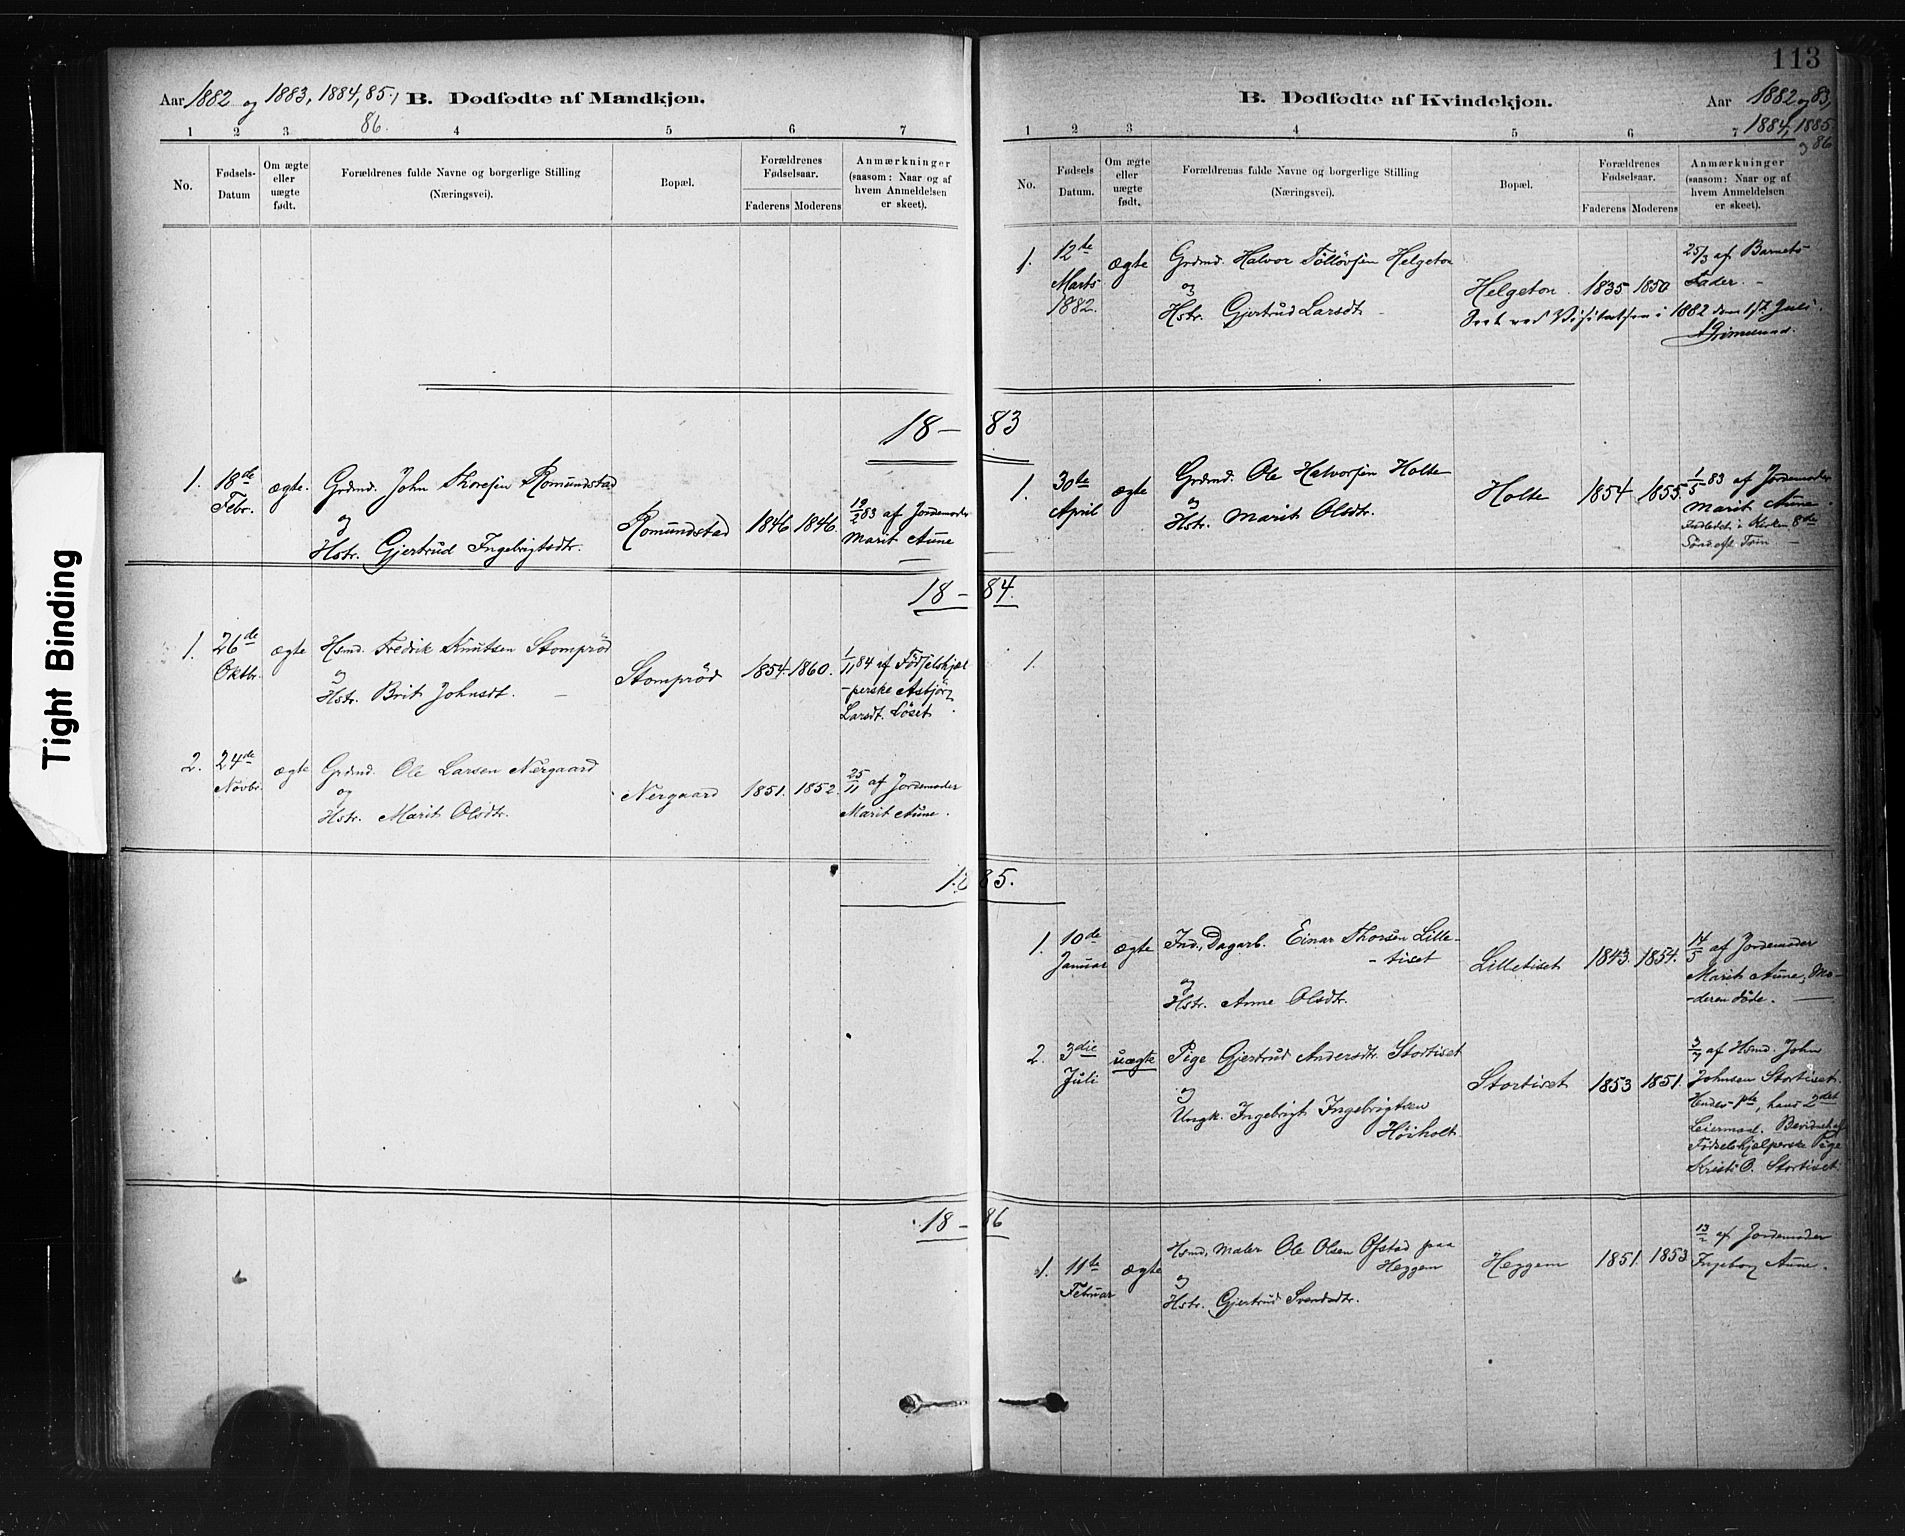 113
Aar 1882 og 1883, 1884, 85, B. Dødfødte af Mandkjøn.
86.
1 2 3 4 5 6 7
No.
Fødsels-Datum
Om ægte eller uægte født.
Forældrenes fulde Navne og borgerlige Stilling
(Næringsvei).
Bopæl.
Forældrenes Fødselsaar.
Faderens Moderens
Anmærkninger
(saasom: Naar og af
hvem Anmeldelsen
er skeet).
18-83
1. 18de Febr. ægte. Grdmd. John Thoresen Romundstad
og
Hstr. Gjertrud Ingebrigtsdtr.
Romundstad 1846 1846
19/2 83 af Jordemoder
Marit Aune
18-84.
1. 26de Oktbr. ægte Hsmd. Fredrik Knutsen Stomprød
og
Hstr. Brit Johnsdt.
Stomprød 1854. 1860.
1/11 84 af Fødselshjæl
-perske Asbjørg
Larsdt. Løset.
2. 24de Novbr. ægte Grdmd. Ole Larsen Nergaard
og
Hstr. Marit Olsdtr.
Nergaard 1851. 1852.
25/11 af Jordemoder
Marit Aune.
1885.
18-86
B. Dødfødte af Kvindekjøn. Aar 1882 og 83,
1884, 1885
og 86
1 2 3 4 5 6 7
No.
Fødsels Datum.
Om ægte eller uægte født.
Forældrenas fulde Navne og borgerlige Stilling
(Næringsvei).
Bopæl.
Forældrenes Fødselsaar.
Faderens Moderens
Anmærkninger
(saasom: Naar og af
hvem Anmeldelsen
er skeet).
1. 12te Marts 1882. ægte Grdmd. Halvor Tølløvsen Helgeton
og
Hstr. Gjertrud Larsdt.
Helgeton. 1835 1850
25/3 af Barnets
Fader.
Seet ved Visitatsen i 1882 den 1ste Juli.
Grimelund.
1. 30te April ægte Grdmd. Ole Halvorsen Holte
og
Hstr. Marit Olsdtr.
Holte 1854. 1855.
1/5 83 af Jordemoder
Marit Aune.
Indledet i Kirken 8de
Sønd. eft. Trin
1.
1. 10de Januar ægte Ind., Dagarb. Einar Thorsen Lille-
-tiset
og
Hstr. Anne Olsdtr.
Lilletiset 1843. 1854.
14/5 af Jordemoder
Marit Aune, Mo-
-deren døde.
2. 3die Juli uægte Pige Gjertrud Andersdtr. Stortiset
og
Ungk. Ingebrigt Ingebrigtsen
Høiholt.
Stortiset 1853 1851.
3/7 af Hsmd. John
Johnsen Stortiset.
Hendes 1ste, hans 2det
Leiermaal. Bevidnet af
Fødselshjælperske Pige
Kristi O. Stortiset.
1. 11te Februar ægte Hsmd, Maler Ole Olsen Ofstad paa
Heggem
og
Hstr. Gjertrud Svendsdtr.
Heggem 1851. 1853.
13/2 af Jordemoder
Ingeborg Aune.
Tight Binding